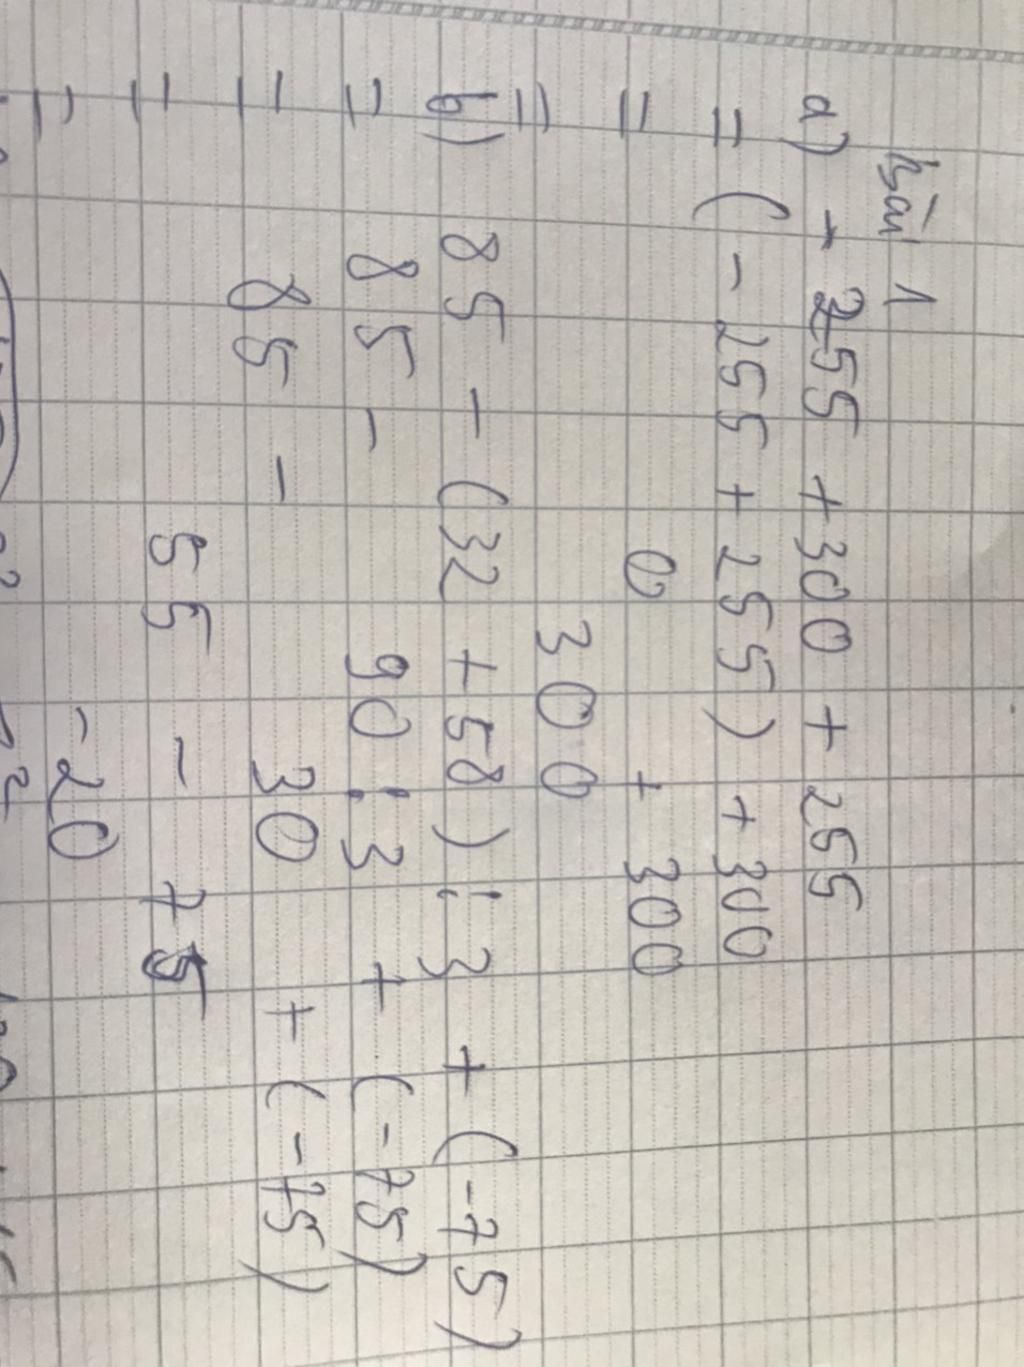 bài 1
a) - 255 + 300 + 255
= ( - 255 + 255 ) + 300
= 0 + 300
= 300
b) 85 - (32 + 58) : 3 + (-75)
= 85 - 90 : 3 + (-75)
= 85 - 30 + (-75)
= 55 - 75
= -20